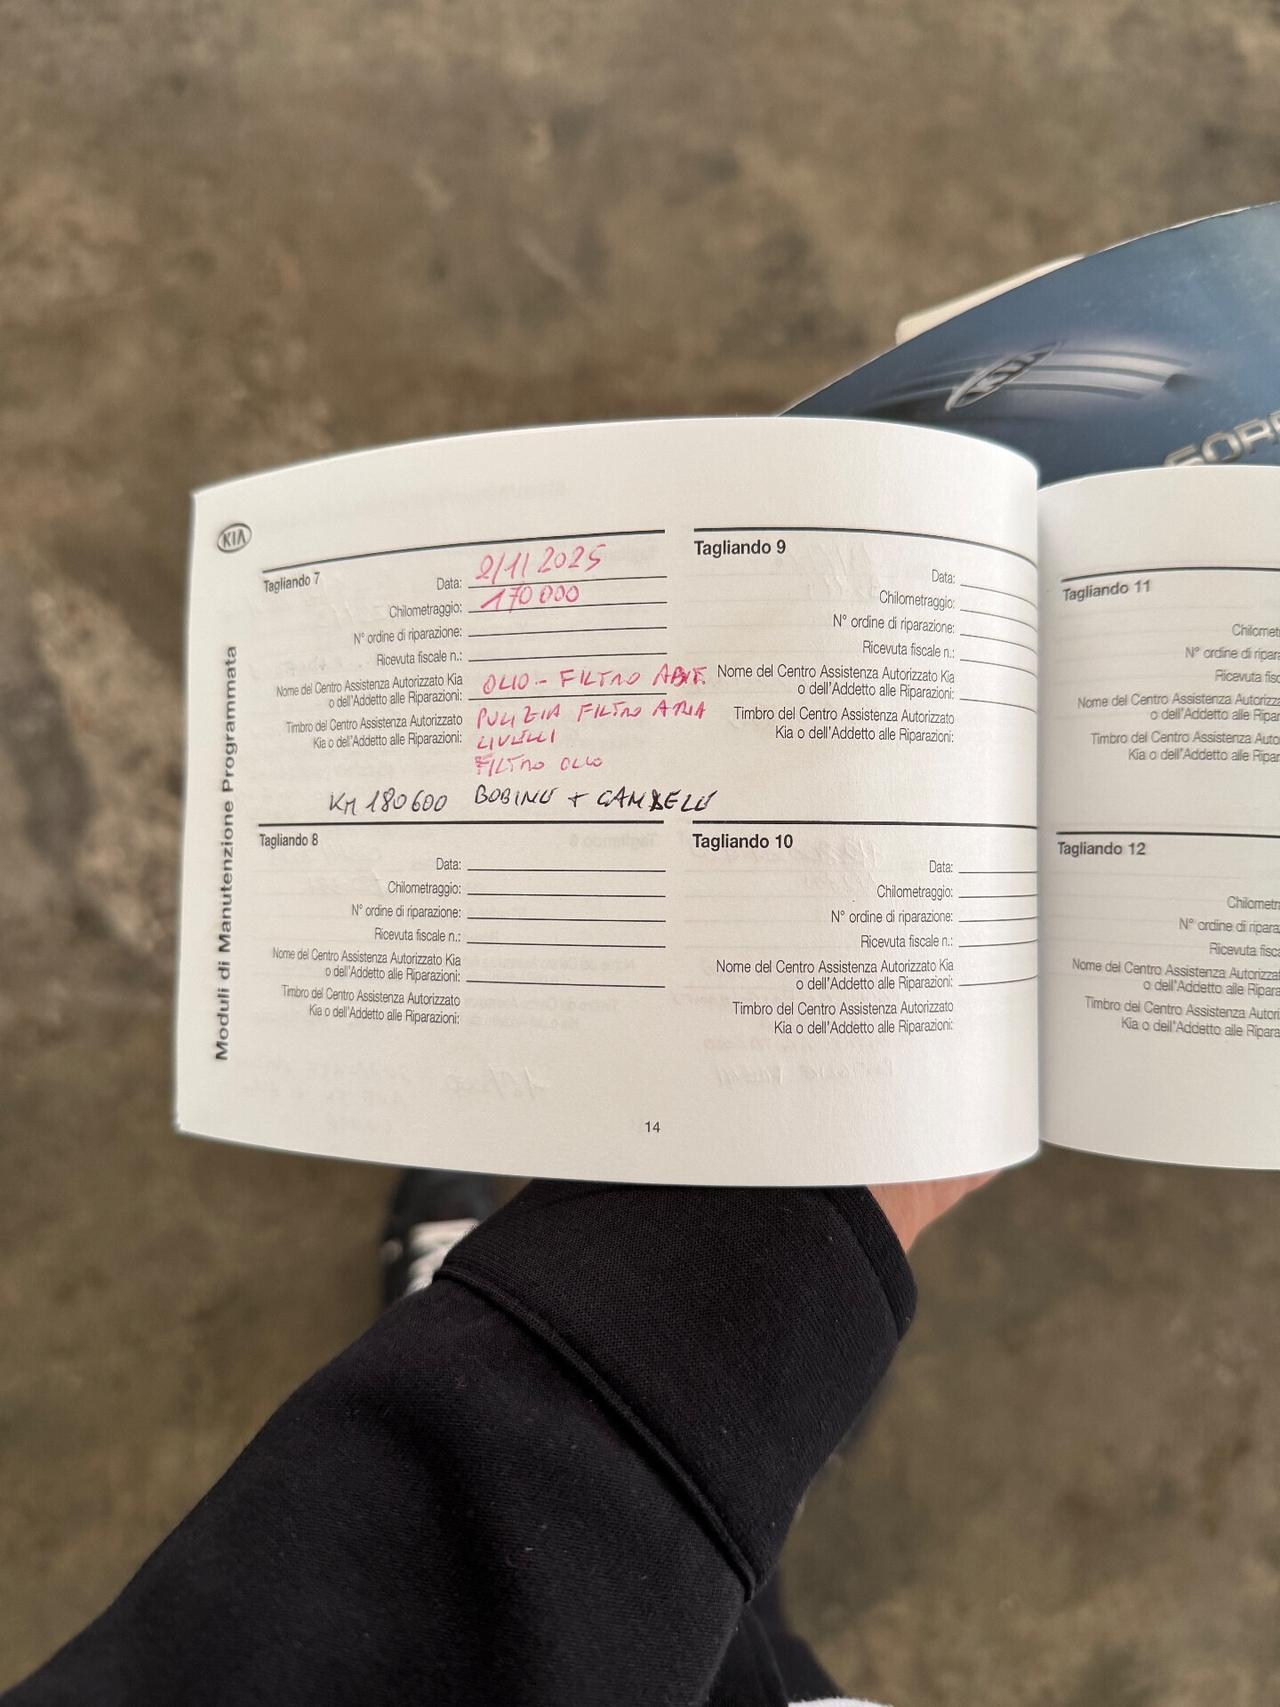 KIA
Moduli di Manutenzione Programmata
Tagliando 7
Data: 2/11 2025
Chilometraggio: 170000
N° ordine di riparazione:
Ricevuta fiscale n.:
Nome del Centro Assistenza Autorizzato Kia
o dell'Addetto alle Riparazioni: OLIO - FILTRO ABIT.
Timbro del Centro Assistenza Autorizzato
Kia o dell'Addetto alle Riparazioni: PULIZIA FILTRO ARIA
LIVELLI
FILTRO OLIO
KM 180600 BOBINE + CANDELE
Tagliando 8
Data:
Chilometraggio:
N° ordine di riparazione:
Ricevuta fiscale n.:
Nome del Centro Assistenza Autorizzato Kia
o dell'Addetto alle Riparazioni:
Timbro del Centro Assistenza Autorizzato
Kia o dell'Addetto alle Riparazioni:
Tagliando 9
Data:
Chilometraggio:
N° ordine di riparazione:
Ricevuta fiscale n.:
Nome del Centro Assistenza Autorizzato Kia
o dell'Addetto alle Riparazioni:
Timbro del Centro Assistenza Autorizzato
Kia o dell'Addetto alle Riparazioni:
Tagliando 10
Data:
Chilometraggio:
N° ordine di riparazione:
Ricevuta fiscale n.:
Nome del Centro Assistenza Autorizzato Kia
o dell'Addetto alle Riparazioni:
Timbro del Centro Assistenza Autorizzato
Kia o dell'Addetto alle Riparazioni:
14
Tagliando 11
Chilomet
N° ordine di ripara
Ricevuta fisc
Nome del Centro Assistenza Autorizzat
o dell'Addetto alle Ripar
Timbro del Centro Assistenza Auto
Kia o dell'Addetto alle Ripar
Tagliando 12
Chilometr
N° ordine di ripara
Ricevuta fisca
Nome del Centro Assistenza Autorizzat
o dell'Addetto alle Ripara
Timbro del Centro Assistenza Autori
Kia o dell'Addetto alle Ripara
KIA
SOR